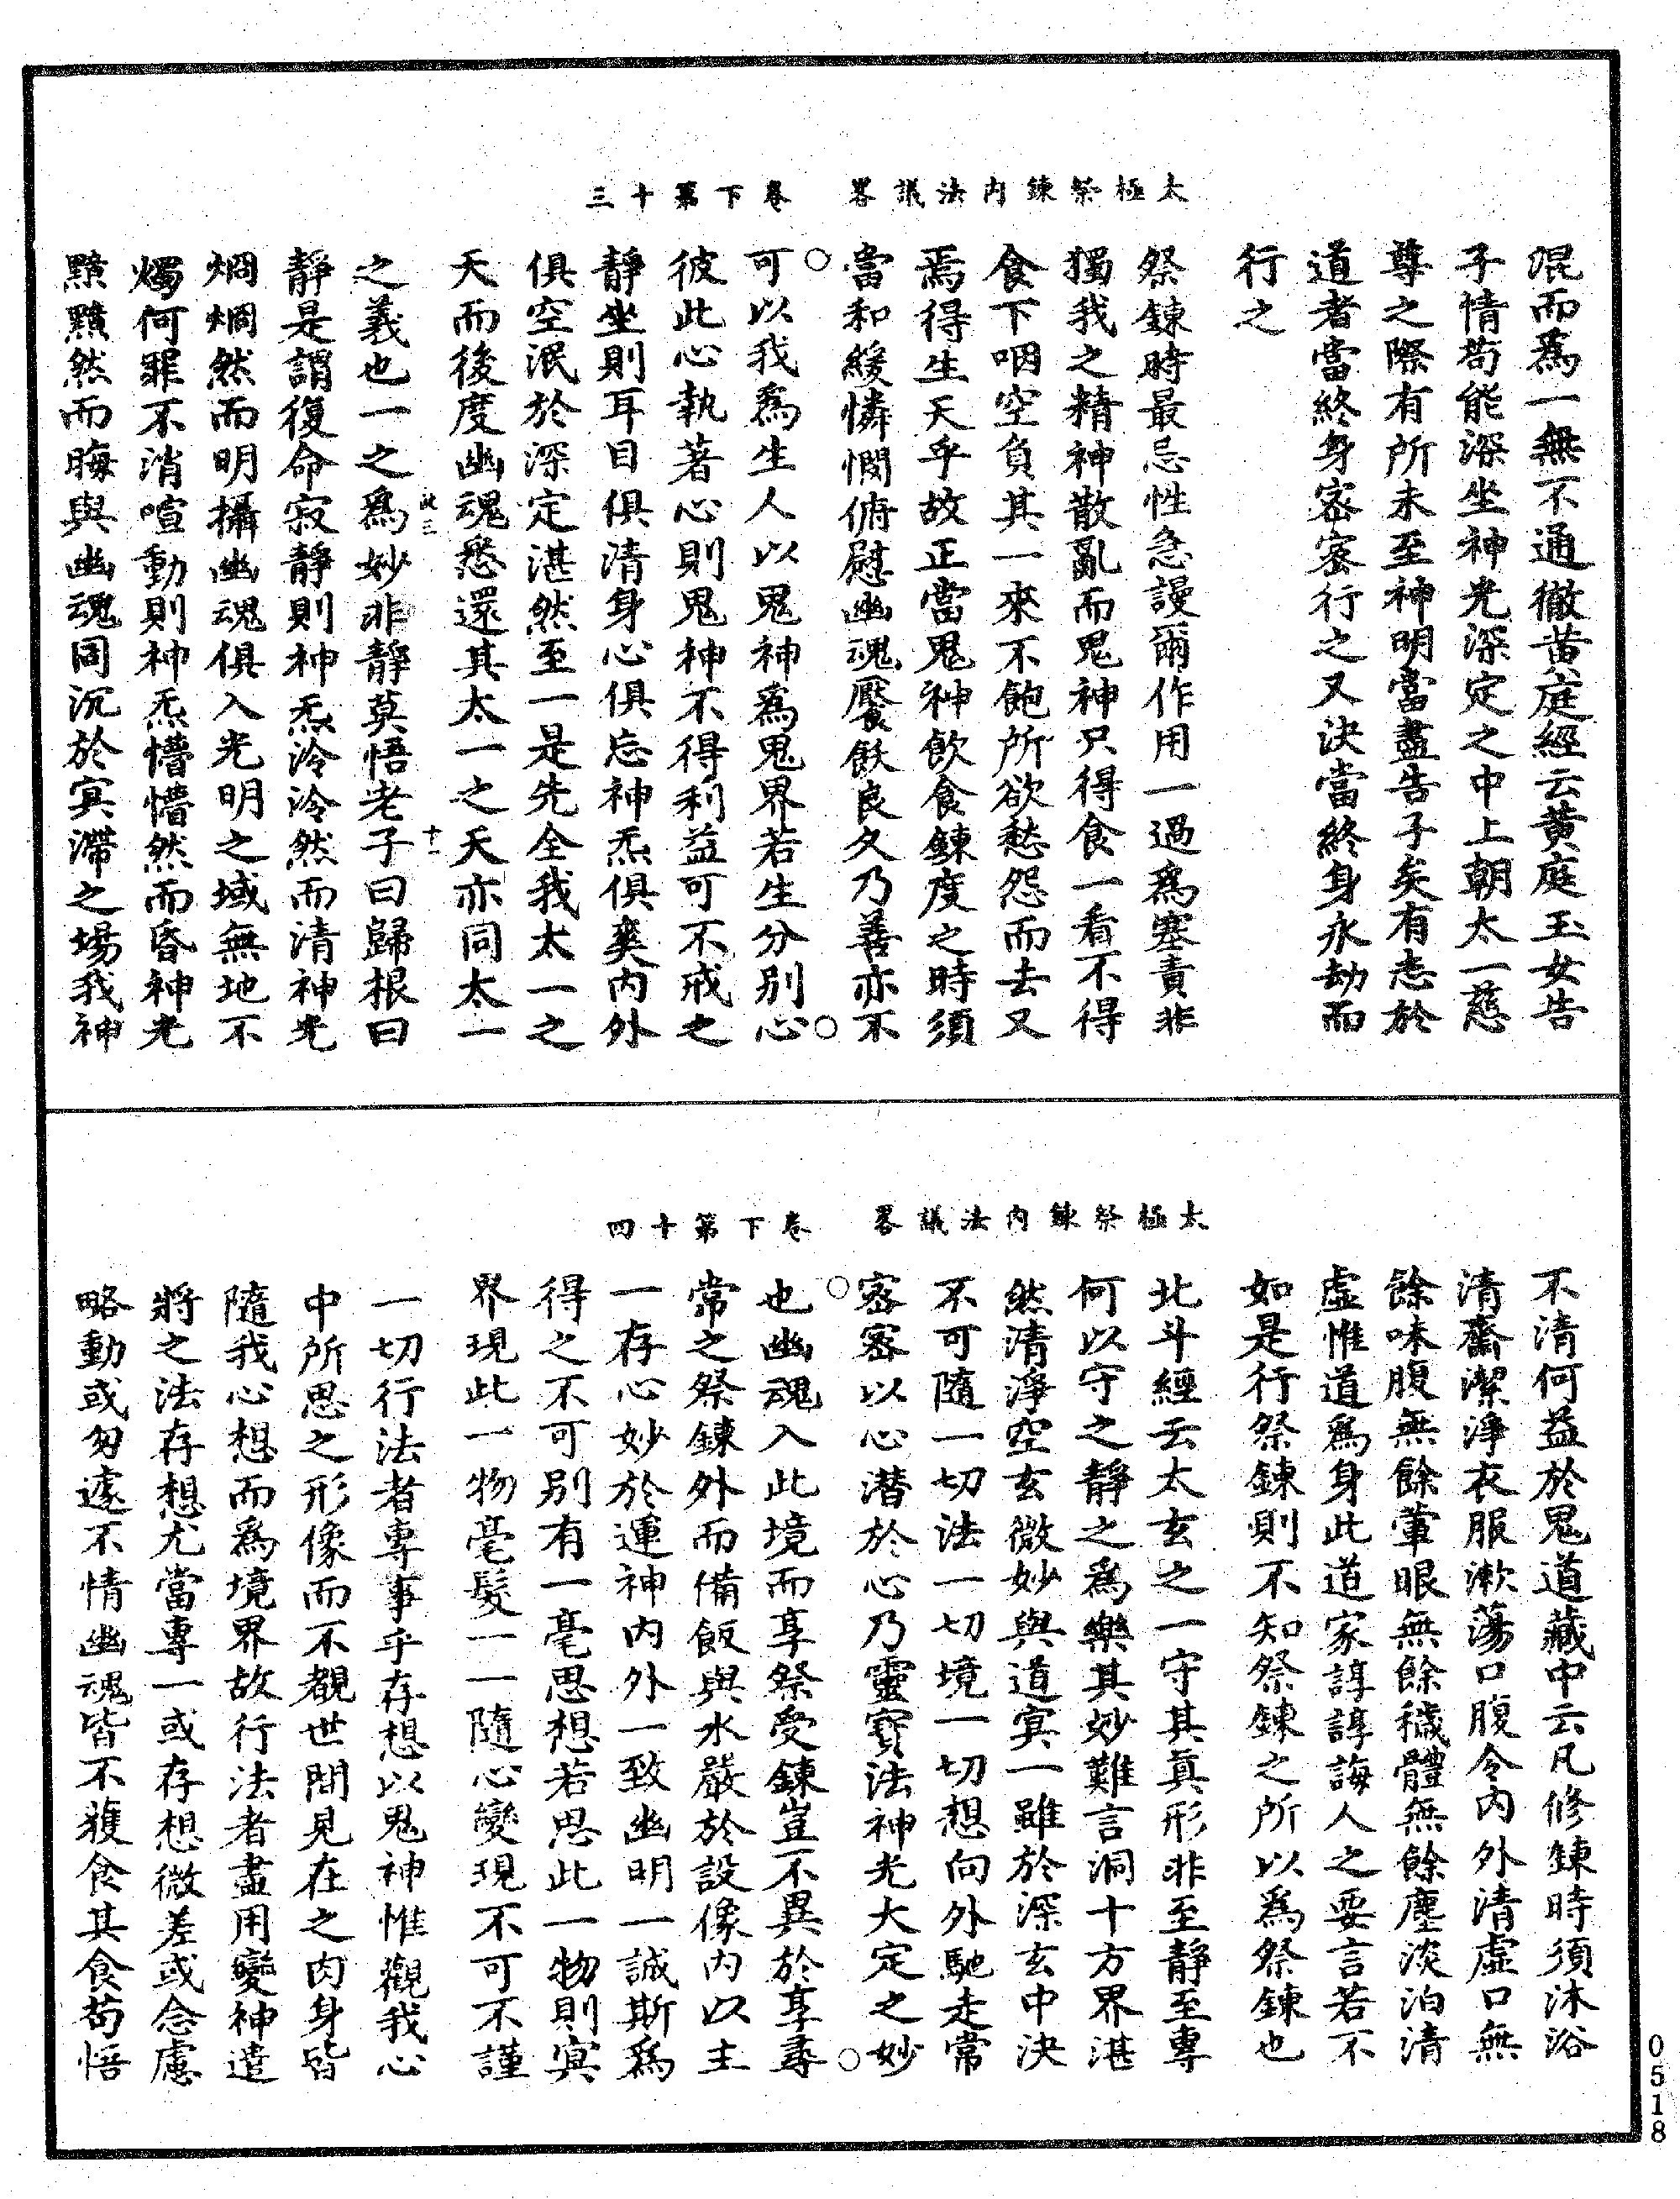 太極祭鍊內法議畧　卷下第十三
混而爲一無不通徹黄庭經云黄庭玉女告
子情苟能深坐神光深定之中上朝太一慈
尊之際有所未至神明當盡告子矣有志於
道者當終身密密行之又決當終身永劫而
行之
祭鍊時最忌性急謾爾作用一過爲塞責非
獨我之精神散亂而鬼神只得食一看不得
食下咽空負其一來不飽所欲愁怨而去又
焉得生天乎故正當鬼神飲食鍊度之時須
當和緩憐憫俯慰幽魂饜飫良久乃善亦不
可以我爲生人以鬼神爲鬼界若生分别心
彼此心執著心則鬼神不得利益可不戒之
靜坐則耳目俱清身心俱忘神炁俱爽内外
俱空泯於深定湛然至一是先全我太一之
天而後度幽魂悉還其太一之天亦同太一
之義也一之爲妙非靜莫悟老子曰歸根曰
靜是謂復命寂靜則神炁泠泠然而清神光
烱烱然而明攝幽魂俱入光明之域無地不
燭何罪不消喧動則神炁懵懵然而昏神光
黯黯然而晦與幽魂同沉於冥滯之場我神
太極祭鍊內法議畧　卷下第十四
不清何益於鬼道藏中云凡修鍊時須沐浴
清齋潔淨衣服漱蕩口腹令内外清虚口無
餘味腹無餘葷眼無餘穢體無餘塵淡泊清
虚惟道爲身此道家諄諄誨人之要言若不
如是行祭鍊則不知祭鍊之所以爲祭鍊也
北斗經云太玄之一守其真形非至靜至專
何以守之靜之爲樂其妙難言洞十方界湛
然清淨空玄微妙與道冥一雖於深玄中決
不可隨一切法一切境一切想向外馳走常
密密以心潛於心乃靈寶法神光大定之妙
也幽魂入此境而享祭受鍊豈不異於享尋
常之祭鍊外而備飯與水嚴於設像内以主
一存心妙於運神内外一致幽明一誠斯爲
得之不可别有一毫思想若思此一物則冥
界現此一物毫髮一一隨心變現不可不謹
一切行法者專事乎存想以鬼神惟觀我心
中所思之形像而不覩世間見在之肉身皆
隨我心想而爲境界故行法者盡用變神遣
將之法存想尤當專一或存想微差或念慮
略動或匆遽不情幽魂皆不獲食其食苟悟
0518